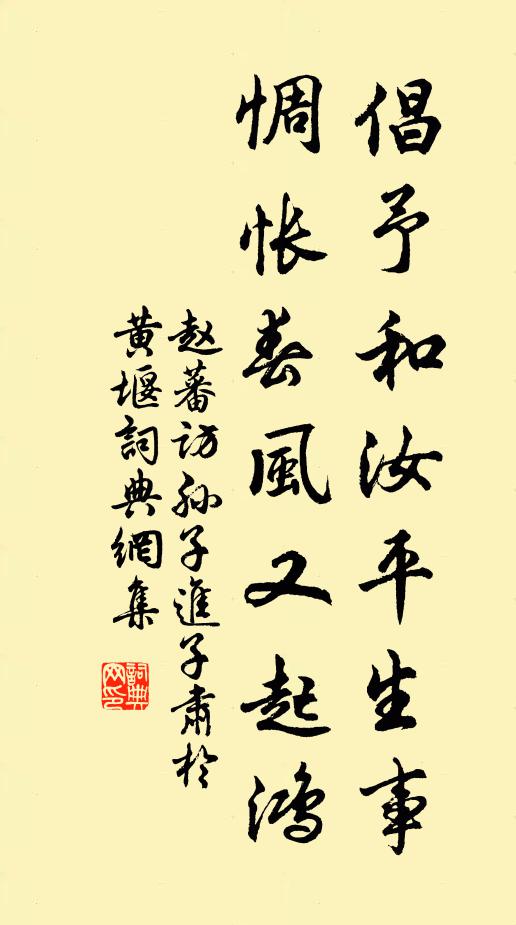 倡予和汝平生事
惆怅春風又起鴻
赵蕃访孙子進子肅於
黄堰詞典網集
詞典网印